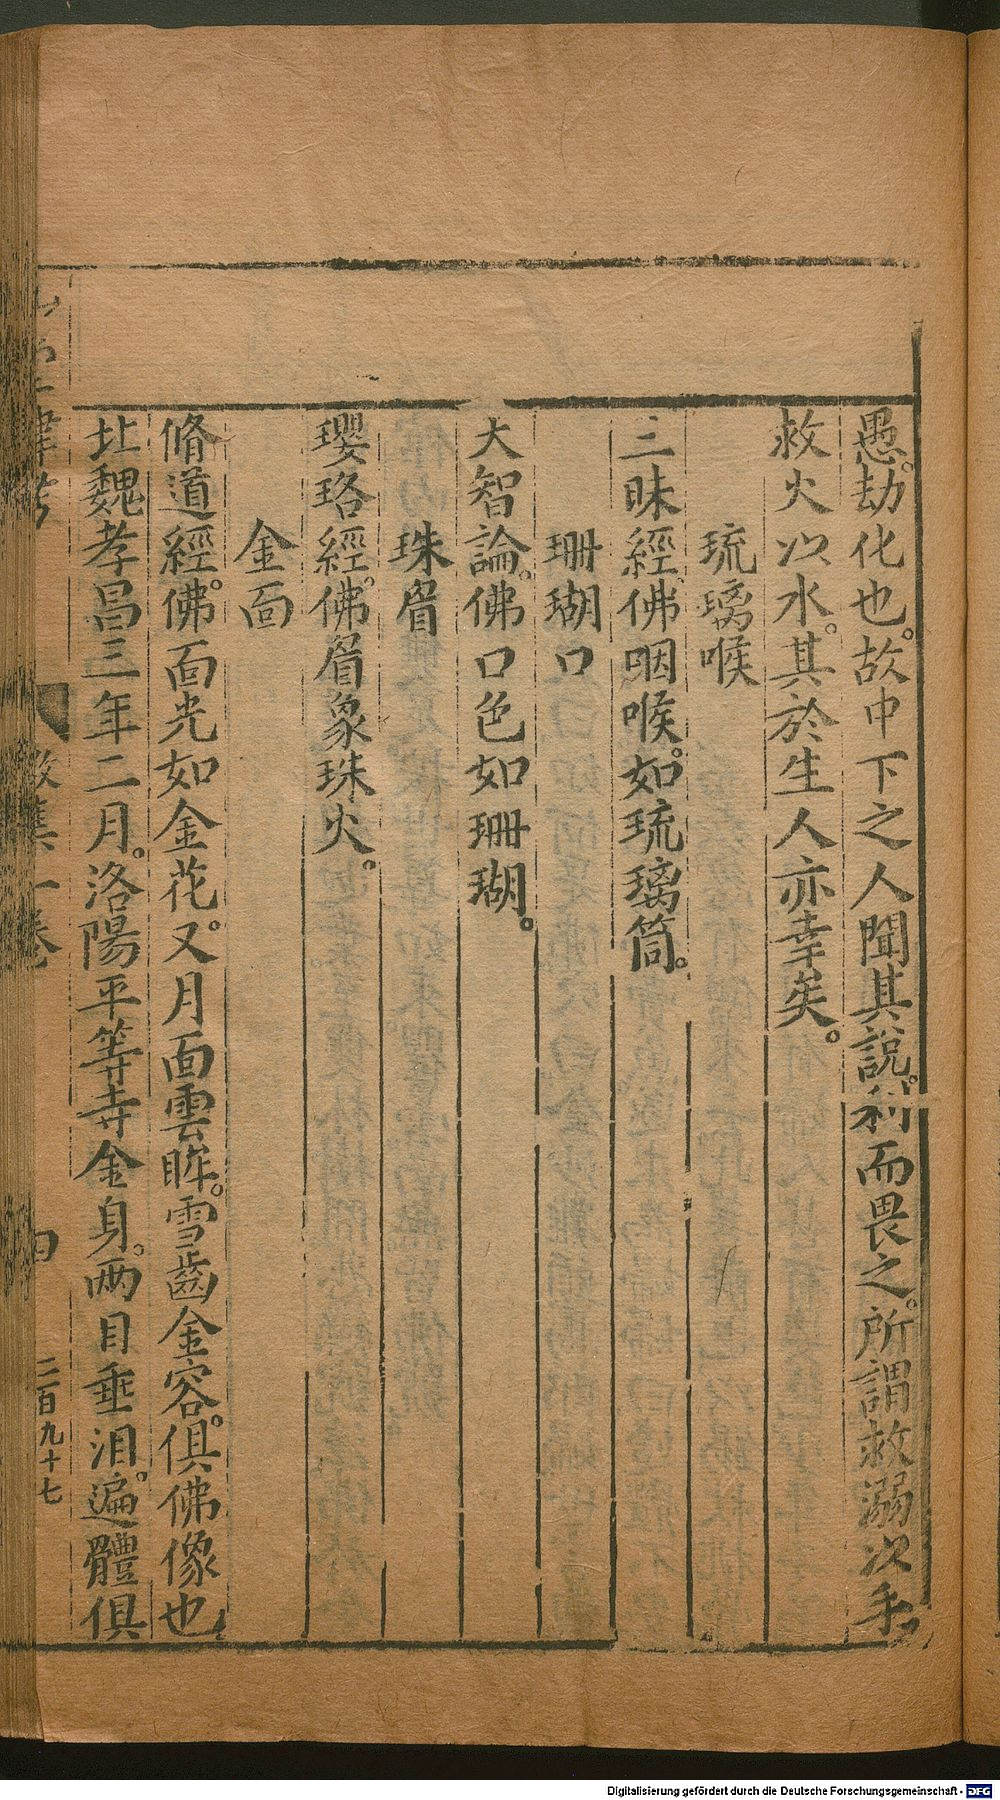 愚。劫化也。故中下之人聞其說。利而畏之。所謂救溺㳄手
救火㳄水。其於生人亦幸矣。
琉璃喉
三昧經。佛咽喉。如琉璃筒。
珊瑚口
大智論。佛口色如珊瑚。
珠眉
瓔珞經。佛眉象珠火。
金面
脩道經。佛面光如金花。又月面雲眸。雪齒金容。俱佛像也
北魏孝昌三年二月。洛陽平等寺金身。兩目垂泪。遍體俱
一卷
二百九十七
Digitalisierung gefördert durch die Deutsche Forschungsgemeinschaft - DFG